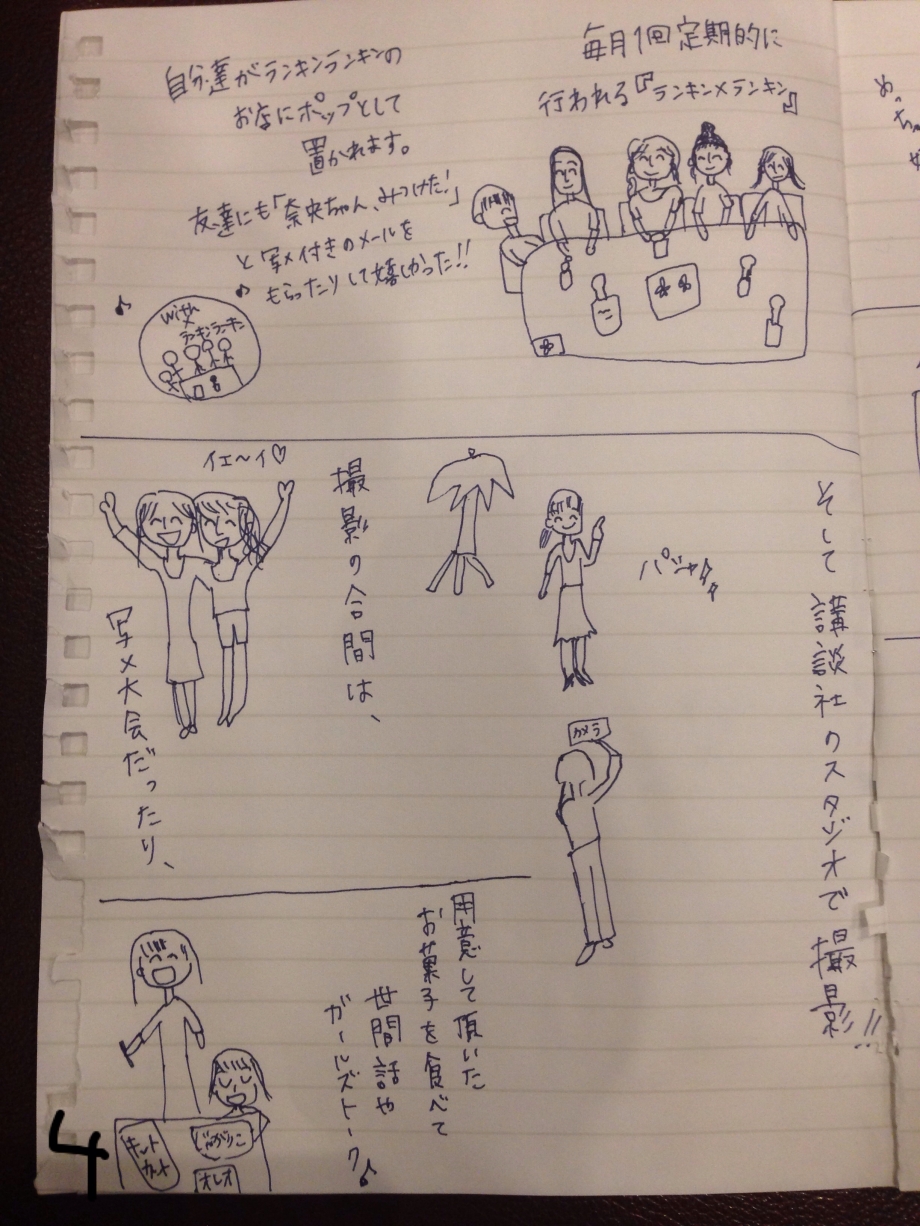 毎月1回定期的に
行われる『ランキン×ランキン』
自分達がランキンランキンの
お店にポップとして
置かれます。
友達にも「奈央ちゃん、みつけた!」
と写メ付きのメールを
もらったりして嬉しかった!!
♪ ♪
with
×
ランキンランキン
そして講談社のスタジオで撮影!!
パシャッッ
カメラ
撮影の合間は、
イエ〜イ♡
写メ大会だったり、
用意して頂いた
お菓子を食べて
世間話や
ガールズトーク♪
キット
カット
じゃがりこ
オレオ
4